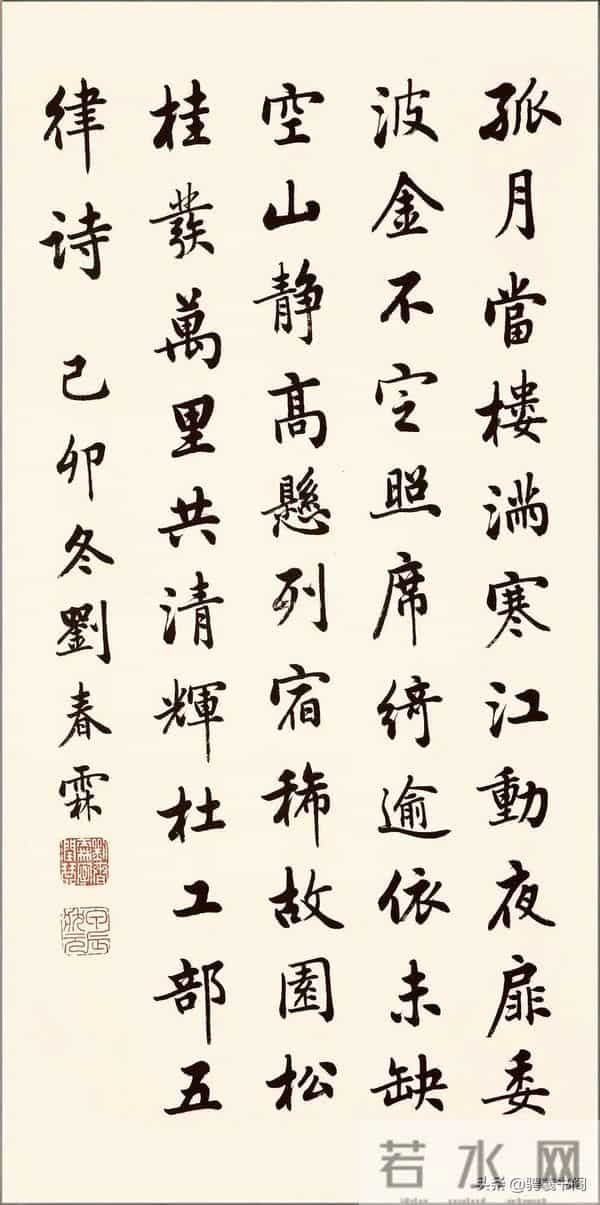 孤月當樓滿寒江動夜扉委
波金不定照席綺逾依未缺
空山静高懸列宿稀故園松
桂發萬里共清輝杜工部五
律诗 己卯冬劉春霖
若水网
头条